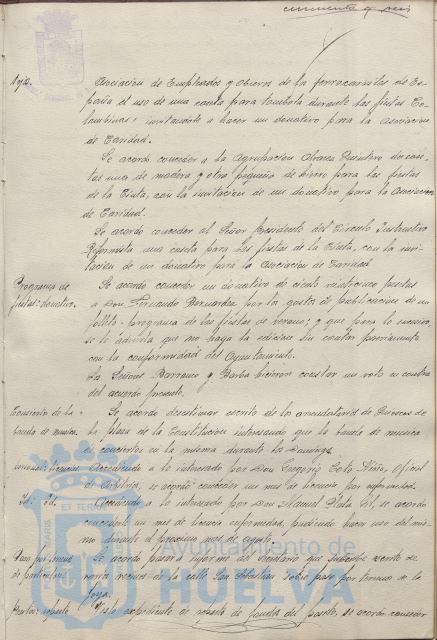 cincuenta y seis
Asociacion de Empleados y Obreros de los ferrocarriles de Es-
paña el uso de una caseta para tombola durante las fiestas Co-
lombinas, invitandole a hacer un donativo para la Asociacion
de Caridad.
Se acordó conceder a la Agrupacion Alvarez Quintero dos case-
tas una de madera y otra pequeña de hierro para las fiestas
de la Cinta, con la invitacion de un donativo para la Asociacion
de Caridad.
Se acordó conceder al Señor Presidente del Circulo Instructivo
Reformista una caseta para las fiestas de la Cinta, con la invi-
tacion de un donativo para la Asociacion de Caridad
Programa de
fiestas: donativo.
Se acordó conceder un donativo de ciento veinticinco pesetas
a Don Fernando Bernardez por los gastos de publicacion de un
folleto-programa de las fiestas de verano; y que para lo sucesivo,
se le advierta que no haga la edicion sin contar previamente
con la conformidad del Ayuntamiento.
Los Señores Barranco y Barba hicieron constar su voto en contra
del acuerdo presente.
Conciertos de la
banda de musica.
Se acordó desestimar escrito de los arrendatarios de kioscos de
la plaza de la Constitucion interesando que la banda de musica
dé conciertos en la misma durante los Domingos
licencias
Accediendo a lo interesado por Don Gregorio Soto Niño, Oficial
de Arbitrios, se acordó conceder un mes de licencia por enfermedad.
Id: id.
Accediendo a lo interesado por Don Manuel Plata Gil, se acordó
concederle un mes de licencia enfermedad, pudiendo hacer uso del mis-
mo durante el proximo mes de agosto.
Se acordó pasara a informe del escrito de
varios vecinos de la calle San Sebastian sobre paso por terrenos de la
Joya.
Visto expediente de reparto de , se acordó conceder
Ayuntamiento de
HUELVA